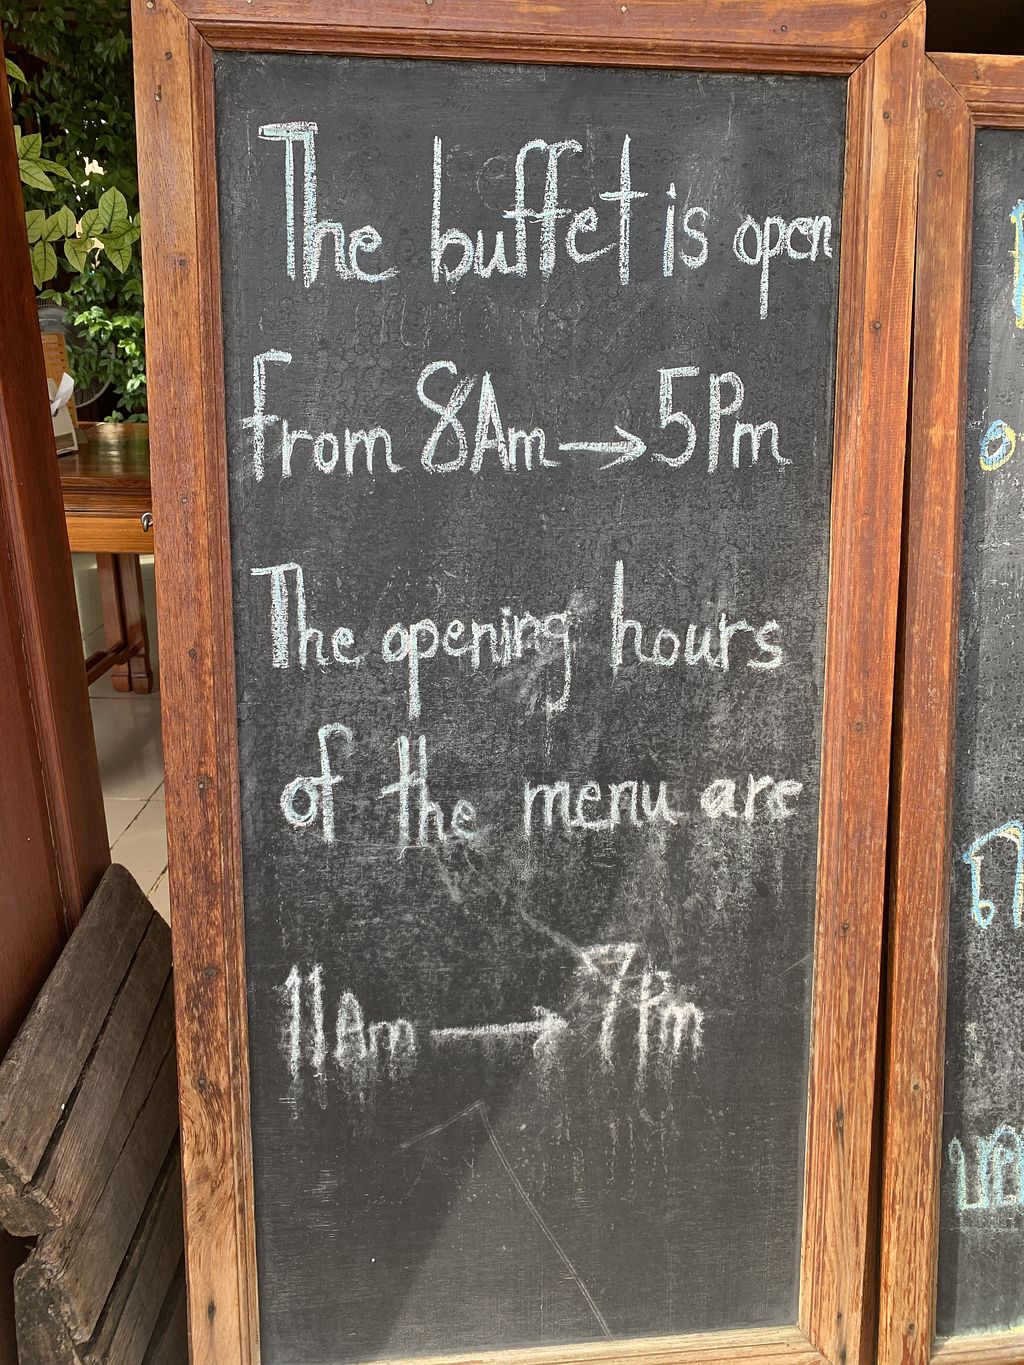 The buffet is open
From 8Am → 5Pm
The opening hours
of the menu are
11Am → 7Pm